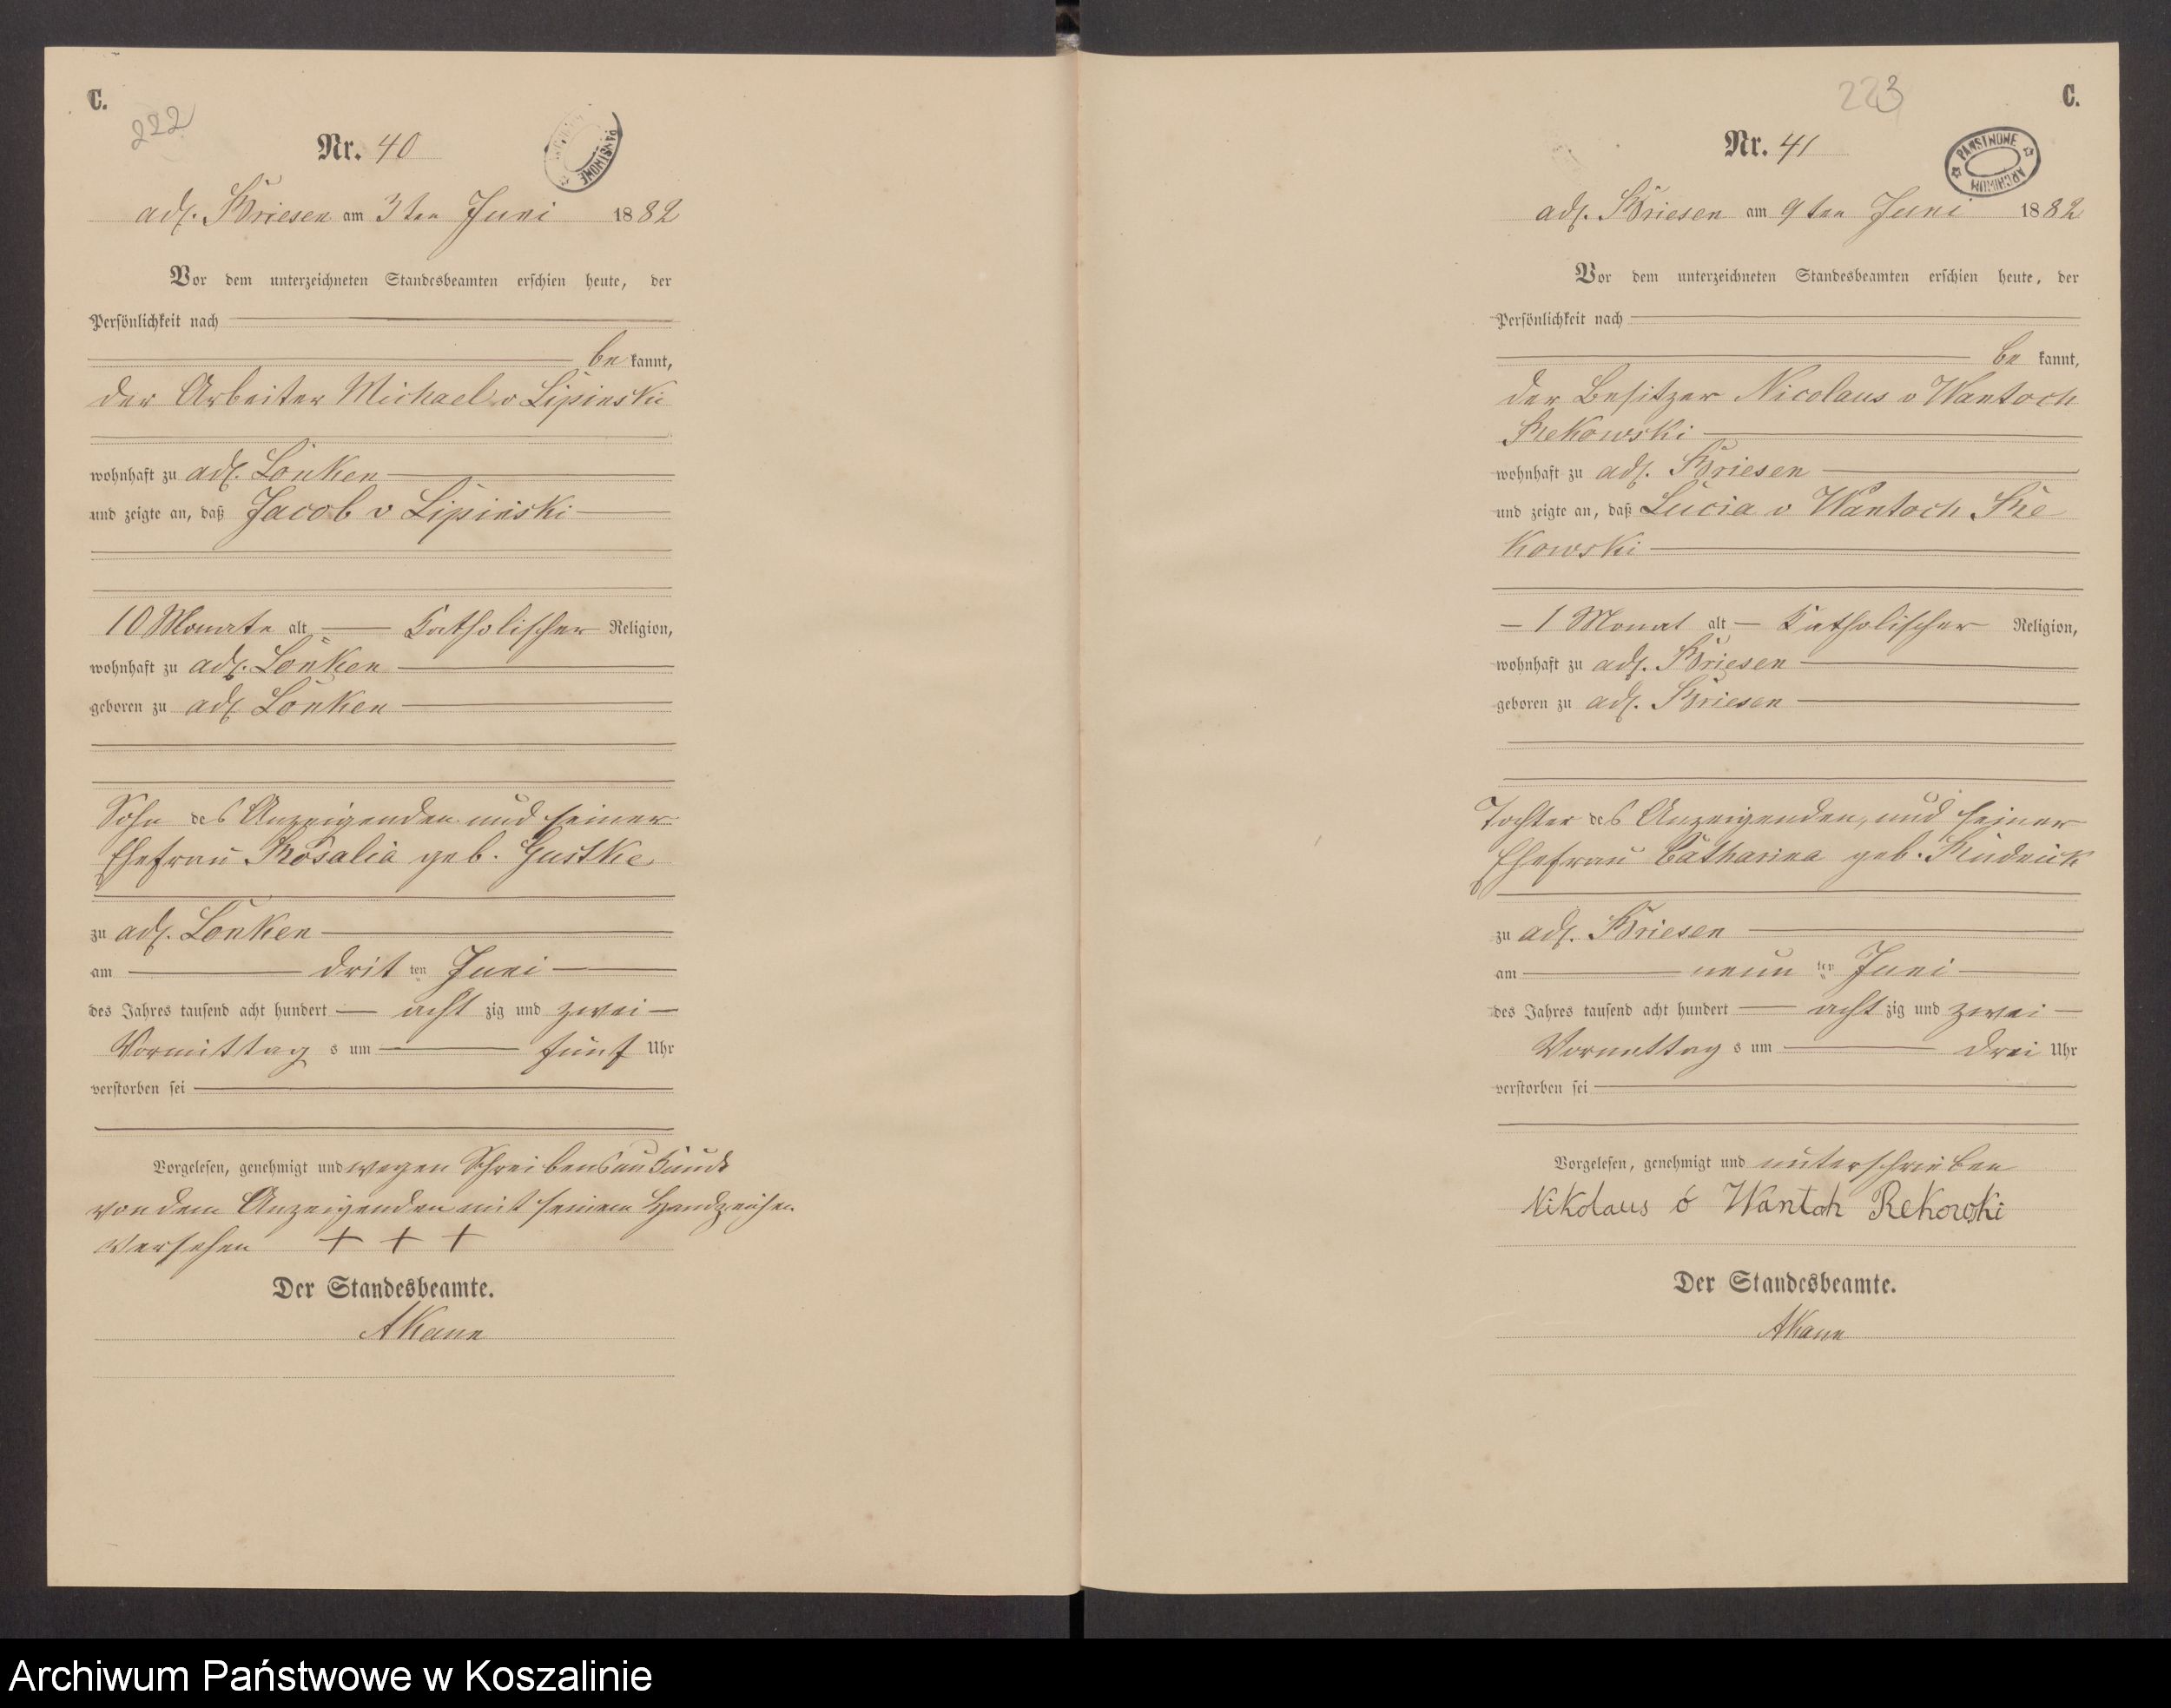 C.
222
Nr. 40
PAŃSTWOWE
adl. Briesen am 3ten Juni 1882
Vor dem unterzeichneten Standesbeamten erschien heute, der
Persönlichkeit nach
be kannt,
der Arbeiter Michael v Lipinski
wohnhaft zu adl. Lonken
und zeigte an, daß Jacob v Lipinski
10 Monate alt Katholischer Religion,
wohnhaft zu adl. Lonken
geboren zu adl Lonken
Sohn des Anzeigenden und seiner
Ehefrau Rosalia geb. Gustke
zu adl. Lonken
am drit ten Juni
des Jahres tausend acht hundert acht zig und zwei
Vormittag s um fünf Uhr
verstorben sei
Vorgelesen, genehmigt und wegen Schreibensunkunde
von dem Anzeigenden mit seinem Handzeichen
versehen + + +
Der Standesbeamte.
223
C.
Nr. 41
PAŃSTWOWE ARCHIWUM
adl. Briesen am 9ten Juni 1882
Vor dem unterzeichneten Standesbeamten erschien heute, der
Persönlichkeit nach
be kannt,
der Besitzer Nicolaus v Wantoch
Rekowski
wohnhaft zu adl. Briesen
und zeigte an, daß Lucia v Wantoch Re
kowski
1 Monat alt Katholischer Religion,
wohnhaft zu adl. Briesen
geboren zu adl. Briesen
Tochter des Anzeigenden, und seiner
Ehefrau Catharina geb.
zu adl. Briesen
am neun ten Juni
des Jahres tausend acht hundert acht zig und zwei
Vormittag s um drei Uhr
verstorben sei
Vorgelesen, genehmigt und unterschrieben
Nikolaus v Wantoh Rekowski
Der Standesbeamte.
Archiwum Państwowe w Koszalinie